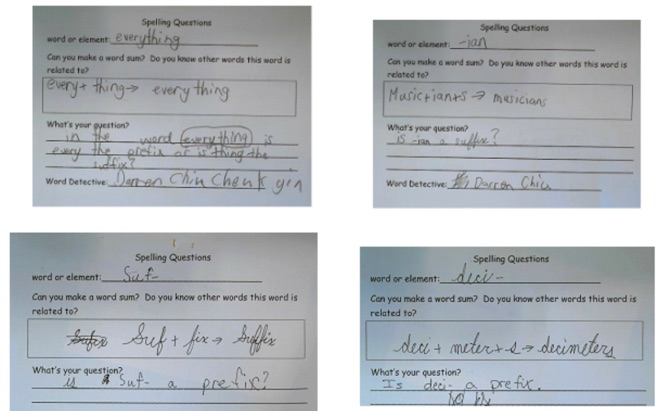 Spelling Questions
word or element: everything
Can you make a word sum? Do you know other words this word is
related to?
every + thing → every thing
What's your question?
in the word everything is
every the prefix or is thing the
suffix?
Word Detective: Darren Chiu
Spelling Questions
word or element: -ian
Can you make a word sum? Do you know other words this word is
related to?
Music+ian+s → musicians
What's your question?
is -ian a suffix?
Word Detective: Darren Chiu
Spelling Questions
word or element: Suf-
Can you make a word sum? Do you know other words this word is
related to?
Suf + fix → Suffix
What's your question?
is Suf- a prefix?
Spelling Questions
word or element: deci-
Can you make a word sum? Do you know other words this word is
related to?
deci + meter + s → decimeters
What's your question?
Is deci- a prefix.